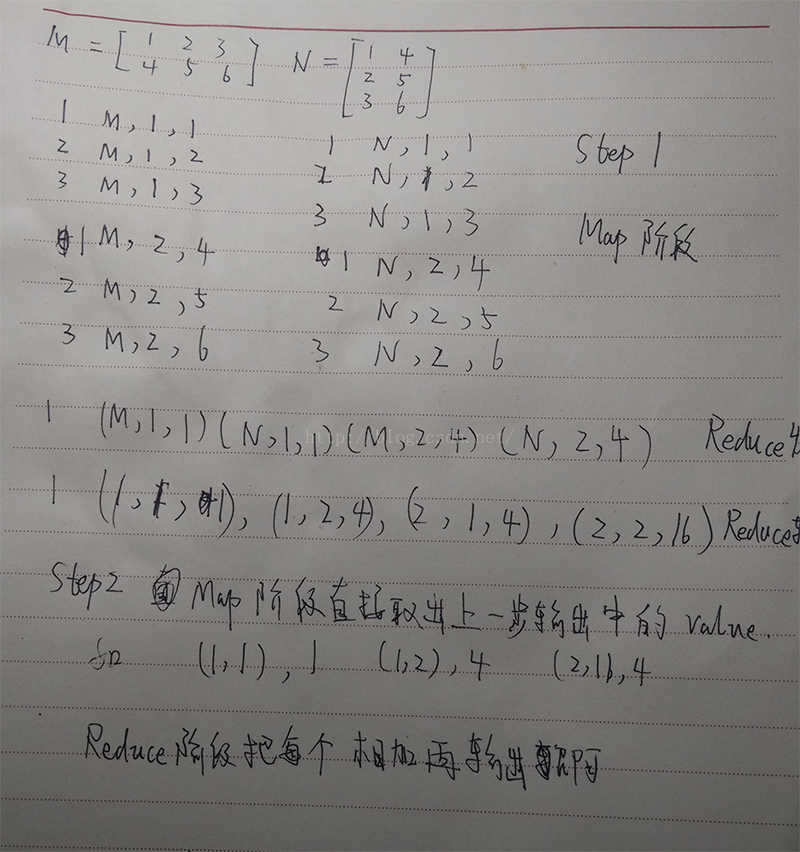 M = [ 1 2 3 N = [ 1 4
4 5 6 ] 2 5
3 6 ]
1 M, 1, 1
2 M, 1, 2
3 M, 1, 3
1 M, 2, 4
2 M, 2, 5
3 M, 2, 6
1 N, 1, 1
2 N, 1, 2
3 N, 1, 3
1 N, 2, 4
2 N, 2, 5
3 N, 2, 6
Step 1
Map 阶段
1 (M, 1, 1) (N, 1, 1) (M, 2, 4) (N, 2, 4) Reduce
1 (1, 1, 1), (1, 2, 4), (2, 1, 4), (2, 2, 16) Reduce
Step2 Map 阶段直接取出上一步输出中的 value.
如 (1, 1), 1 (1, 2), 4 (2, 1), 4
Reduce 阶段把每个 相加再输出即可